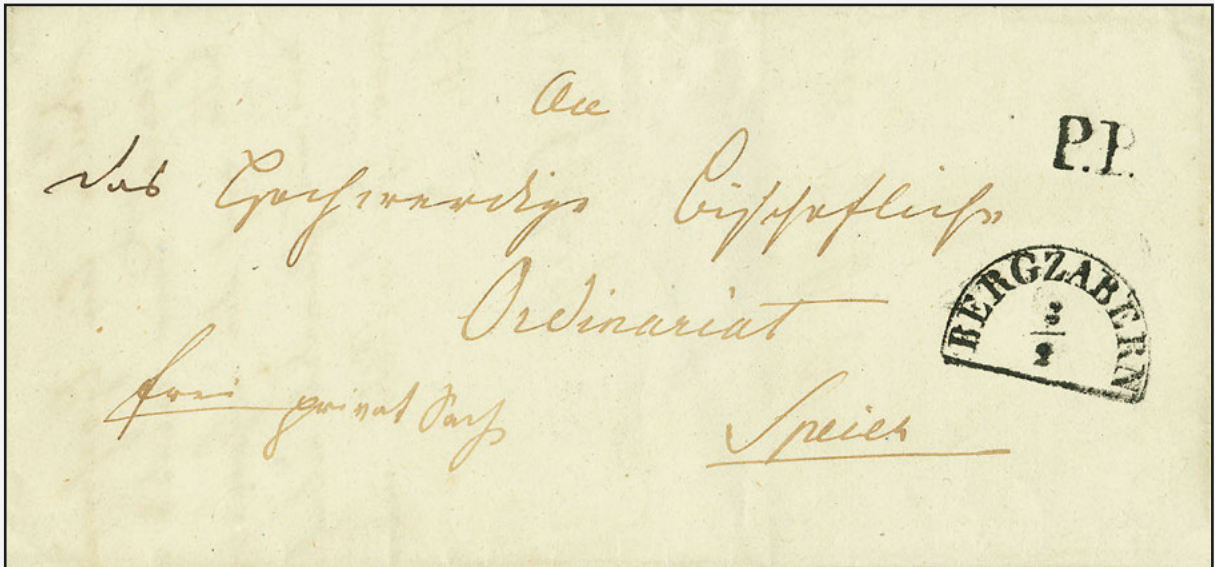 An
P.P.
das Hochwerdige Bischofliche
Ordinariat
BERGZABERN
3
2
frei privat Sach
Speier